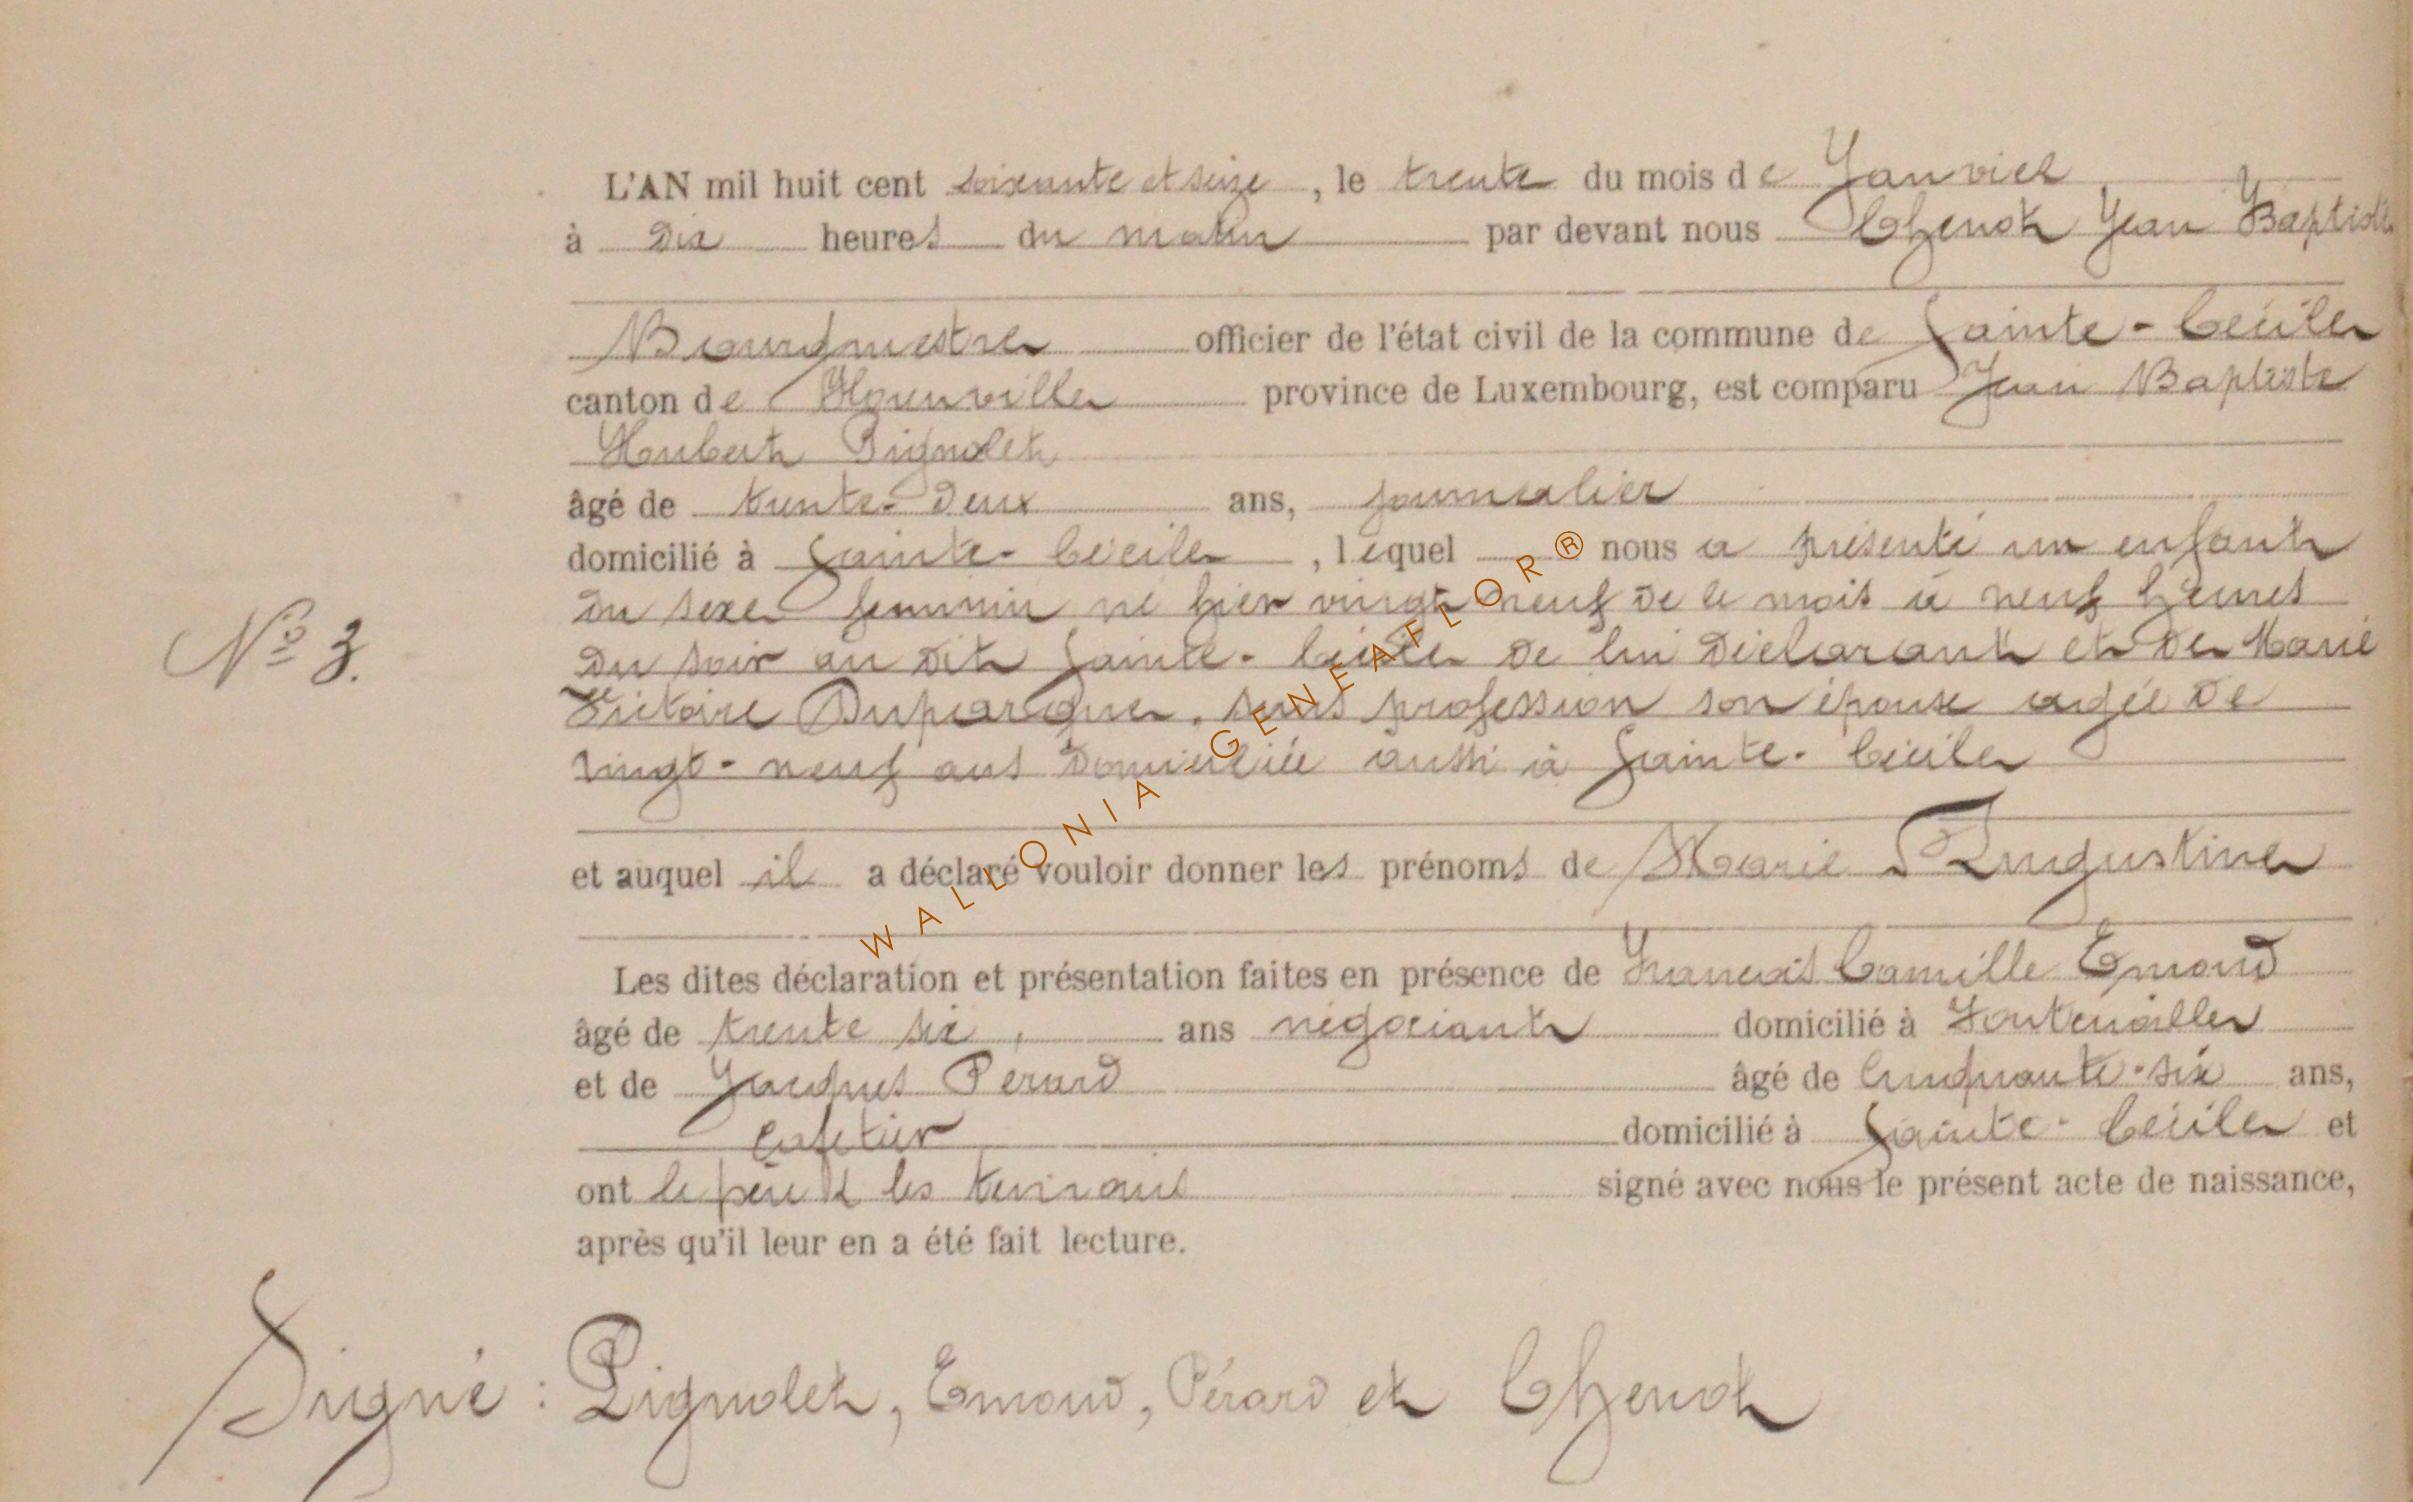 L'AN mil huit cent soixante et seize, le trente du mois de Janvier
à dix heures du matin par devant nous Chenot Jean Baptiste
Bourgmestre officier de l'état civil de la commune de Sainte-Cécile
canton de Florenville province de Luxembourg, est comparu Jean Baptiste
Hubert Pignolet
âgé de trente-deux ans, journalier
domicilié à Sainte-Cécile, lequel nous a présenté un enfant
du sexe feminin né hier vingt neuf de ce mois à neuf heures
du soir au dit Sainte-Cécile de lui déclarant et de Marie
Victoire Duparque, sans profession son épouse agée de
vingt-neuf ans domiciliée aussi à Sainte-Cécile
N° 3.
et auquel il a déclaré vouloir donner les prénoms de Marie Augustine
Les dites déclaration et présentation faites en présence de François Camille Emond
âgé de trente six, ans négociant domicilié à Fontenoille
et de Jacques Perard âgé de cinquante-six ans,
cafetier domicilié à Sainte-Cécile et
ont le père et les témoins signé avec nous le présent acte de naissance,
après qu'il leur en a été fait lecture.
Signé : Pignolet, Emond, Pérard et Chenot
WALLONIA-GENEAFLOR®